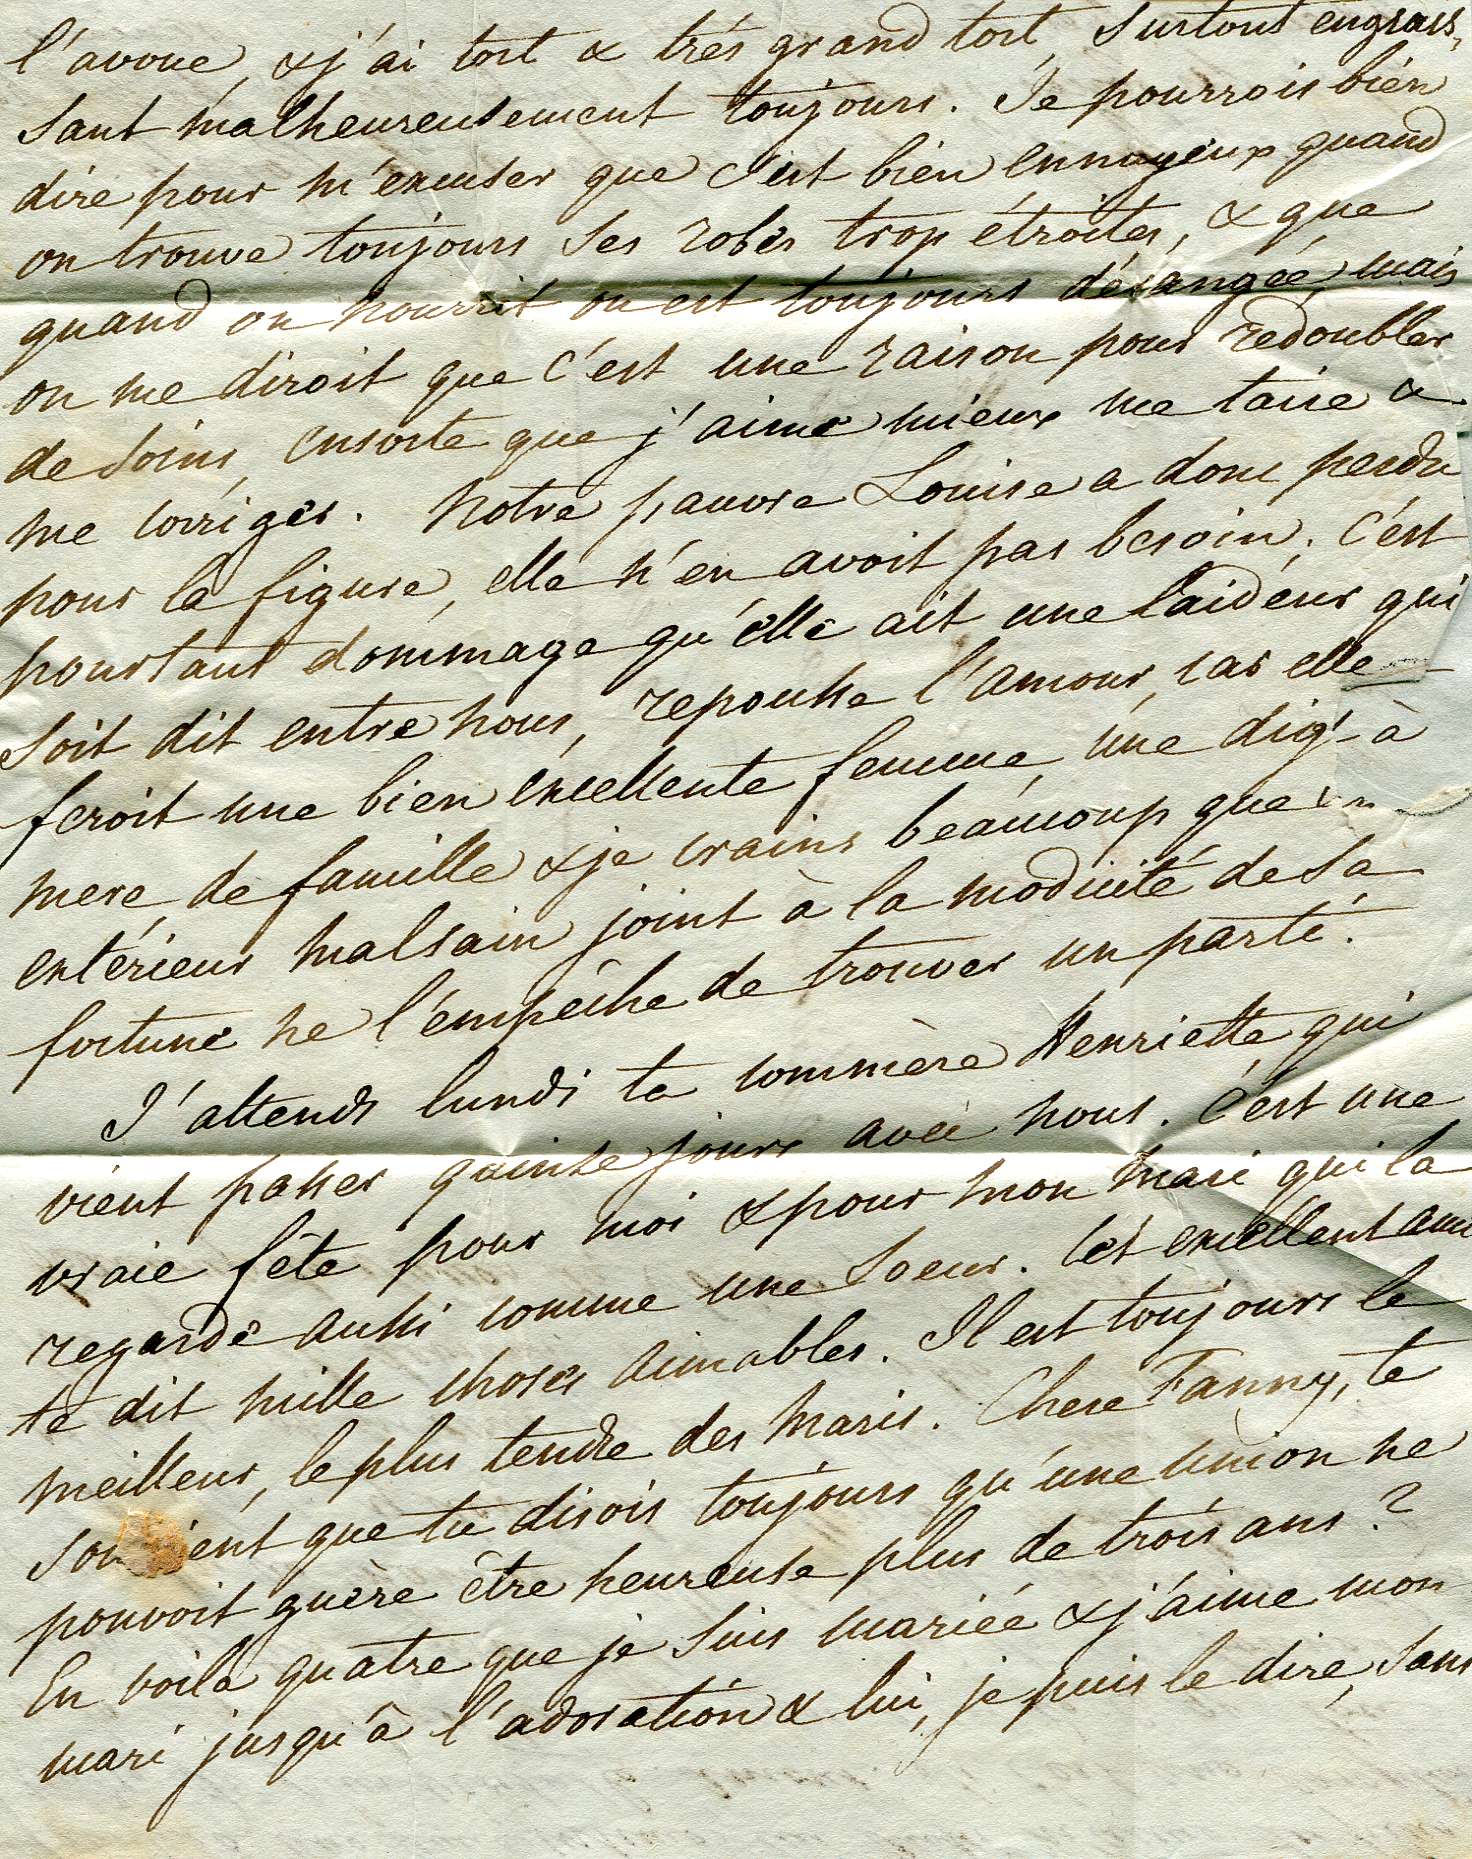 l'avoue, & j'ai tort & très grand tort, surtout engrais-
sant malheureusement toujours. Je pourrois bien
dire pour m'excuser que c'est bien ennuyeux quand
on trouve toujours ses robes trop étroites, & que
quand on nourrit on est toujours dérangée, mais
on me diroit que c'est une raison pour redoubler
de soins, ensorte que j'aime mieux me taire &
me corriger. Notre pauvre Louise a donc perdu
pour la figure, elle n'en avoit pas besoin. C'est
pourtant dommage qu'elle ait une laideur qui
soit dit entre nous, repousse l'amour, car elle
feroit une bien excellente femme, une dig
mere de famille & je crains beaucoup que
extérieur malsain joint à la modicité de sa
fortune ne l'empêche de trouver un parti.
J'attends lundi ta commère Henriette qui
vient passer quinze jours avec nous. C'est une
vraie fête pour moi & pour mon mari qui la
regarde aussi comme une soeur. Cet excellent ami
te dit mille choses aimables. Il est toujours le
meilleur, le plus tendre des maris. Chere Fanny, te
sou ient que tu disois toujours qu'une union ne
pouvoit guère être heureuse plus de trois ans?
En voilà quatre que je suis mariée & j'aime mon
mari jusqu'à l'adoration & lui, je puis le dire, sans